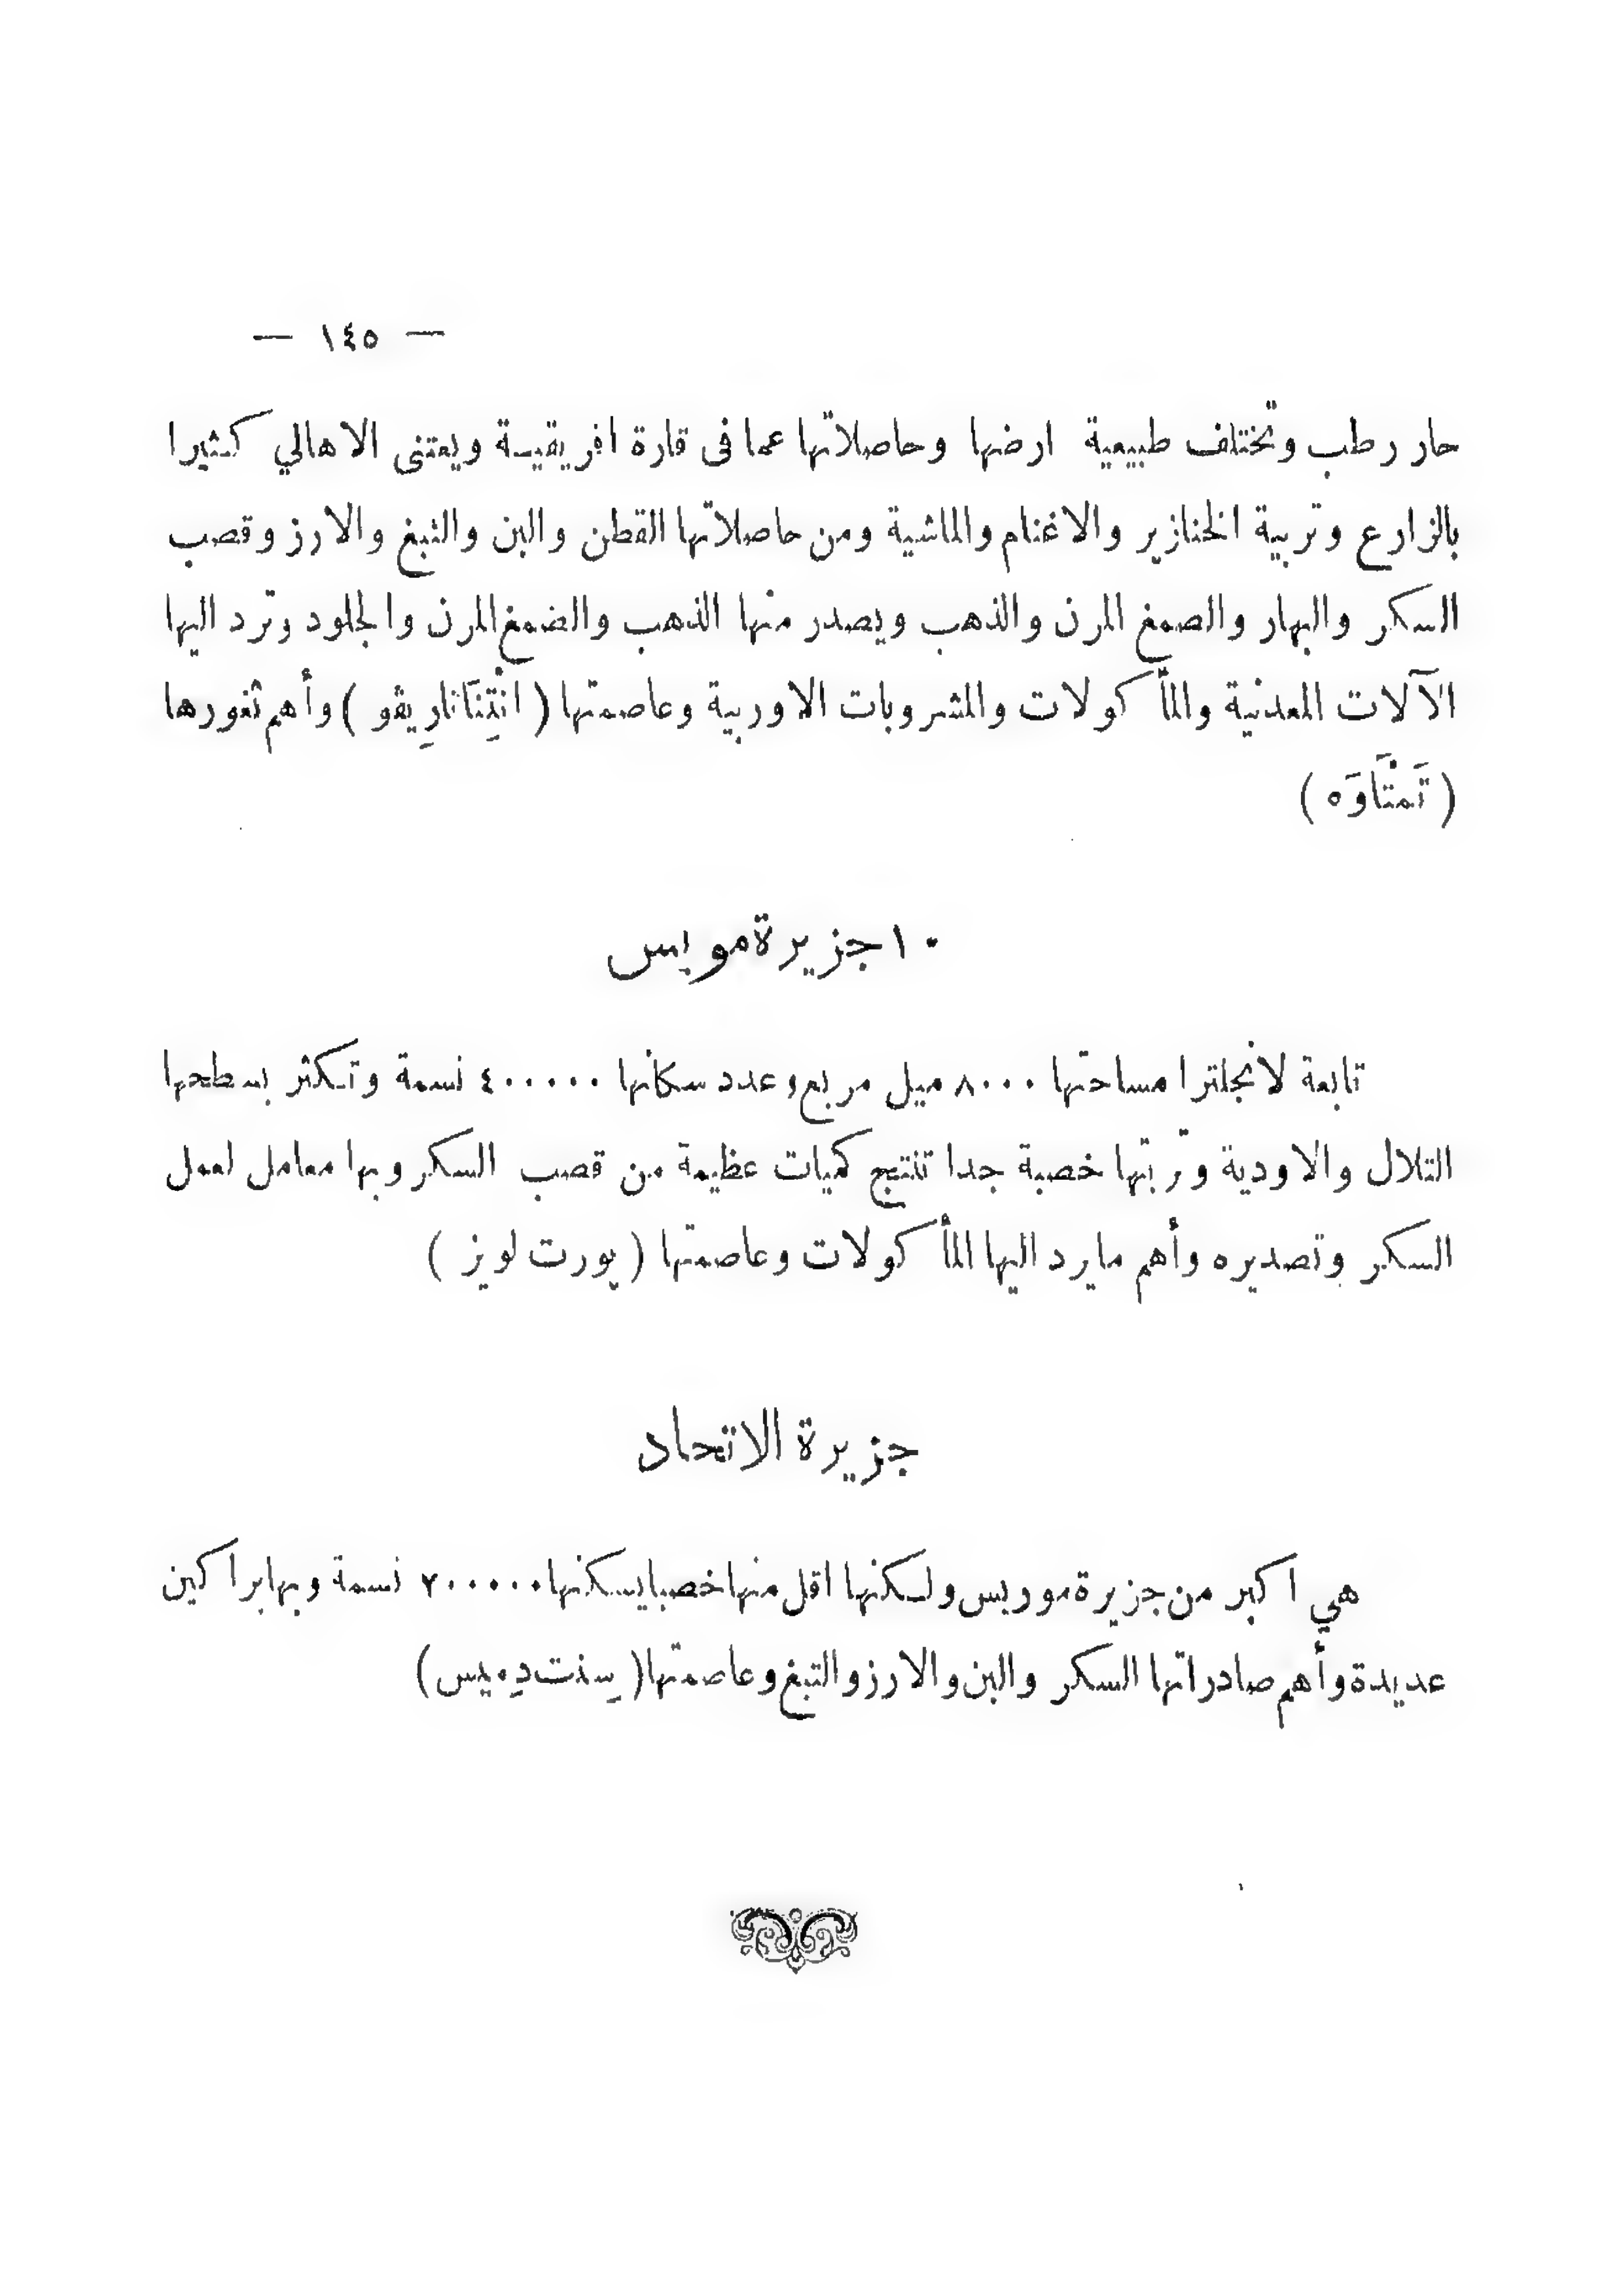 — ١٤٥ —
حار رطب وتختلف طبيعية ارضها وحاصلاتها عما فى قارة افريقيـة ويعتنى الاهالي كـثيرا
بالزارع وتربية الخنازير والاغنام والماشية ومن حاصلاتها القطن والبن والتبغ والارز وقصب
السكر والبهار والصمغ المرن والذهب ويصدر منها الذهب والضمغ المرن والجلود وترد اليها
الآلات المعدنية والمأكولات والمشروبات الاوربية وعاصمتها ( انْتِنَانارِيڤو ) وأهم ثغورها
( تَمتَاوَه )
١٠ جزيرة مويس
تابعة لانجلترا مساحتها ٨٠٠٠ ميل مربع وعدد سكانها ٤٠٠٠٠٠ نسمة وتـكثر بسطحها
التلال والاودية وتربتها خصبة جدا تنتج كميات عظيمة من قصب السكر وبها معامل لعمل
السكر وتصديره وأهم مايرد اليها المأكولات وعاصمتها ( پورت لويز )
جزيرة الاتحاد
هي اكبر من جزيرة موريس ولـكنها اقل منها خصبا يسكنها ٢٠٠٠٠٠ نسمة وبها براكين
عديدة وأهم صادراتها السكر والبن والارز والتبغ وعاصمتها ( سِنت دِميس )